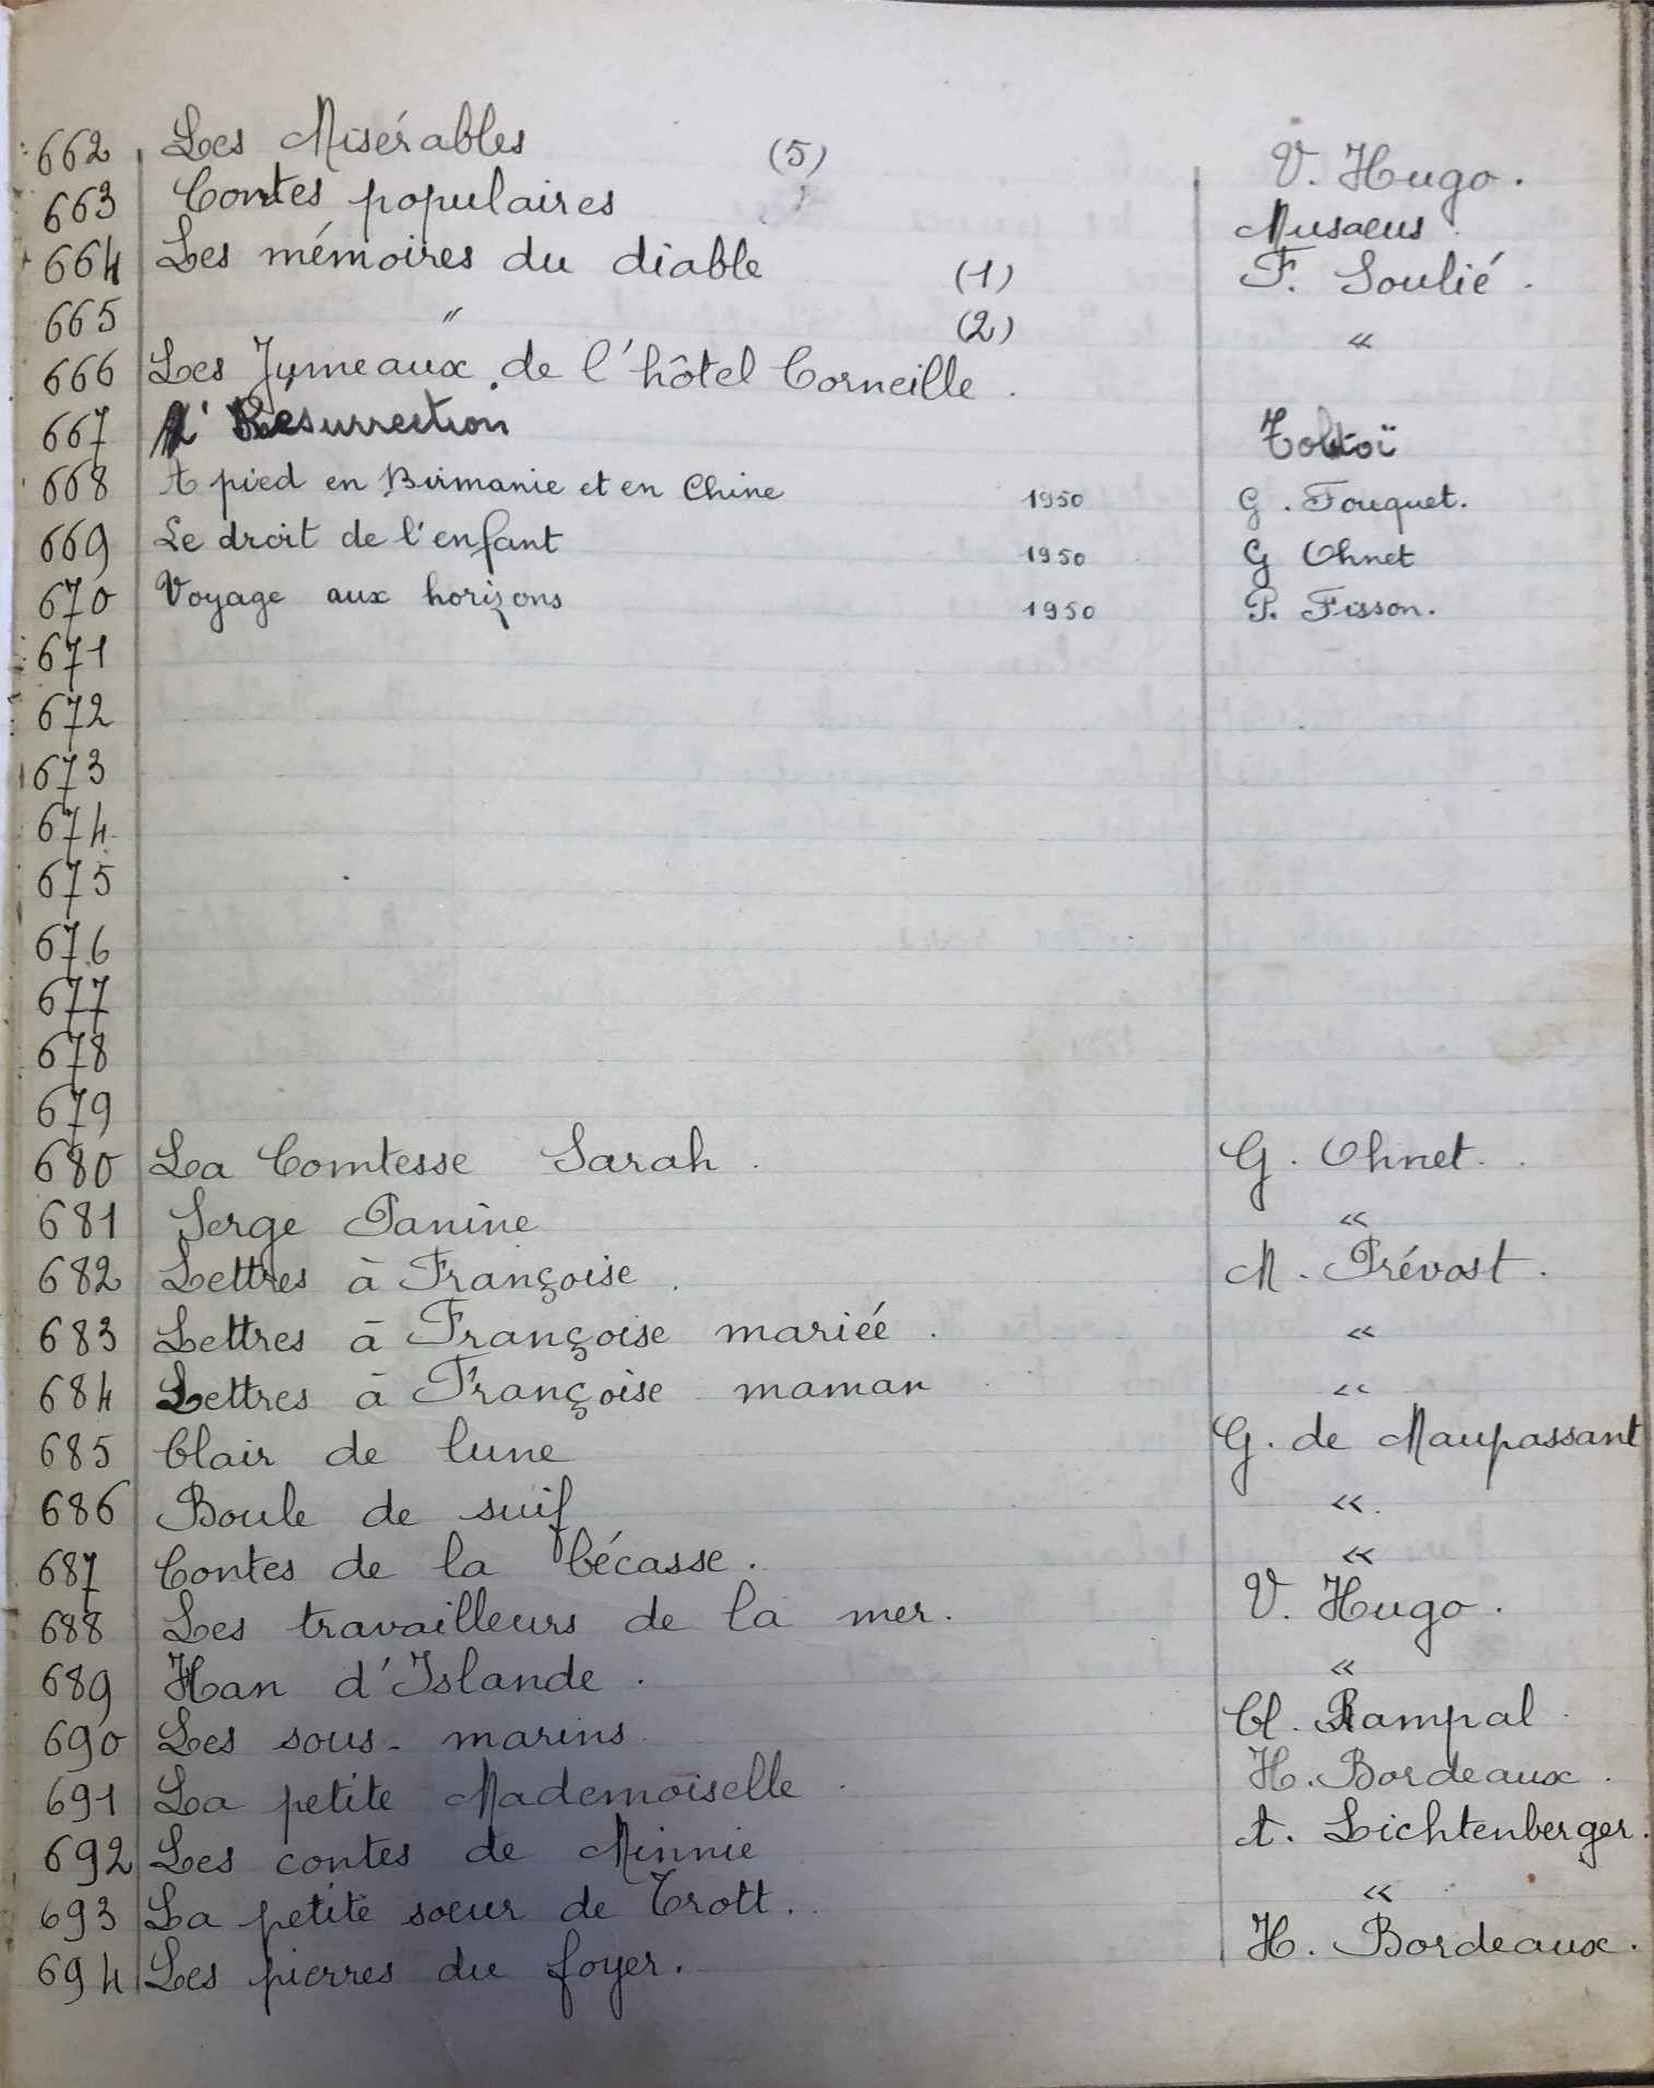 662 Les Misérables (5) V. Hugo.
663 Contes populaires Musaeus.
664 Les mémoires du diable (1) F. Soulié.
665 " (2) «
666 Les Jumeaux de l'hôtel Corneille.
667 Résurrection Tolstoï
668 A pied en Birmanie et en Chine 1950 G. Fouquet.
669 Le droit de l'enfant 1950 G Ohnet
670 Voyage aux horizons 1950 P. Fisson.
671
672
673
674
675
676
677
678
679
680 La Comtesse Sarah. G. Ohnet.
681 Serge Panine «
682 Lettres à Françoise. M. Prévost.
683 Lettres à Françoise mariée. «
684 Lettres à Françoise maman «
685 Clair de lune G. de Maupassant
686 Boule de suif «
687 Contes de la bécasse. «
688 Les travailleurs de la mer. V. Hugo.
689 Han d'Islande. «
690 Les sous-marins Cl. Rampal.
691 La petite Mademoiselle. H. Bordeaux.
692 Les contes de Minnie A. Lichtenberger.
693 La petite soeur de Trott. «
694 Les pierres du foyer. H. Bordeaux.